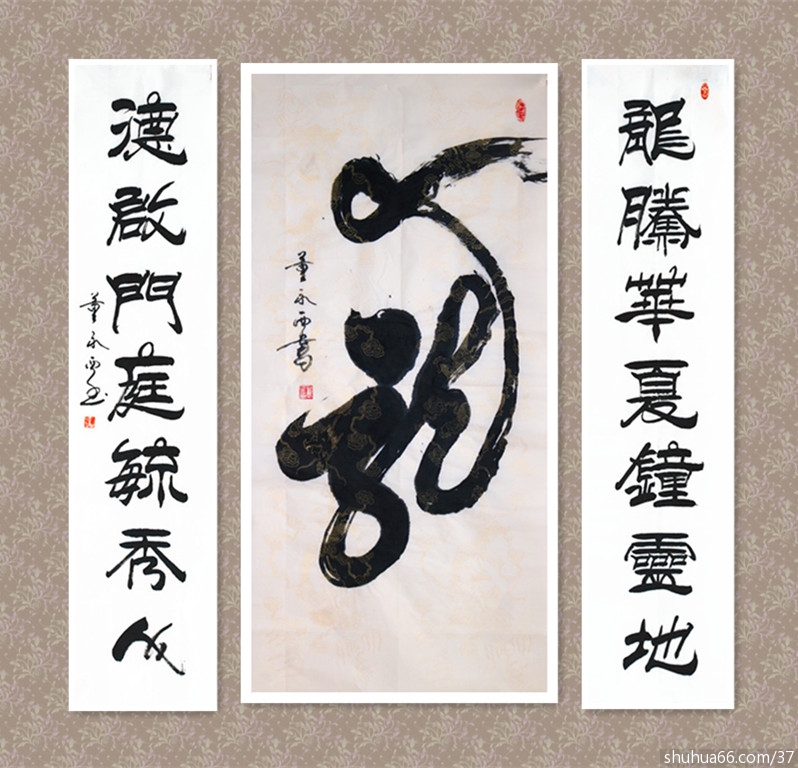 龍騰華夏鐘靈地
龍
董永西書
德啟門庭毓秀人
董永西书
shuhua66.com/37